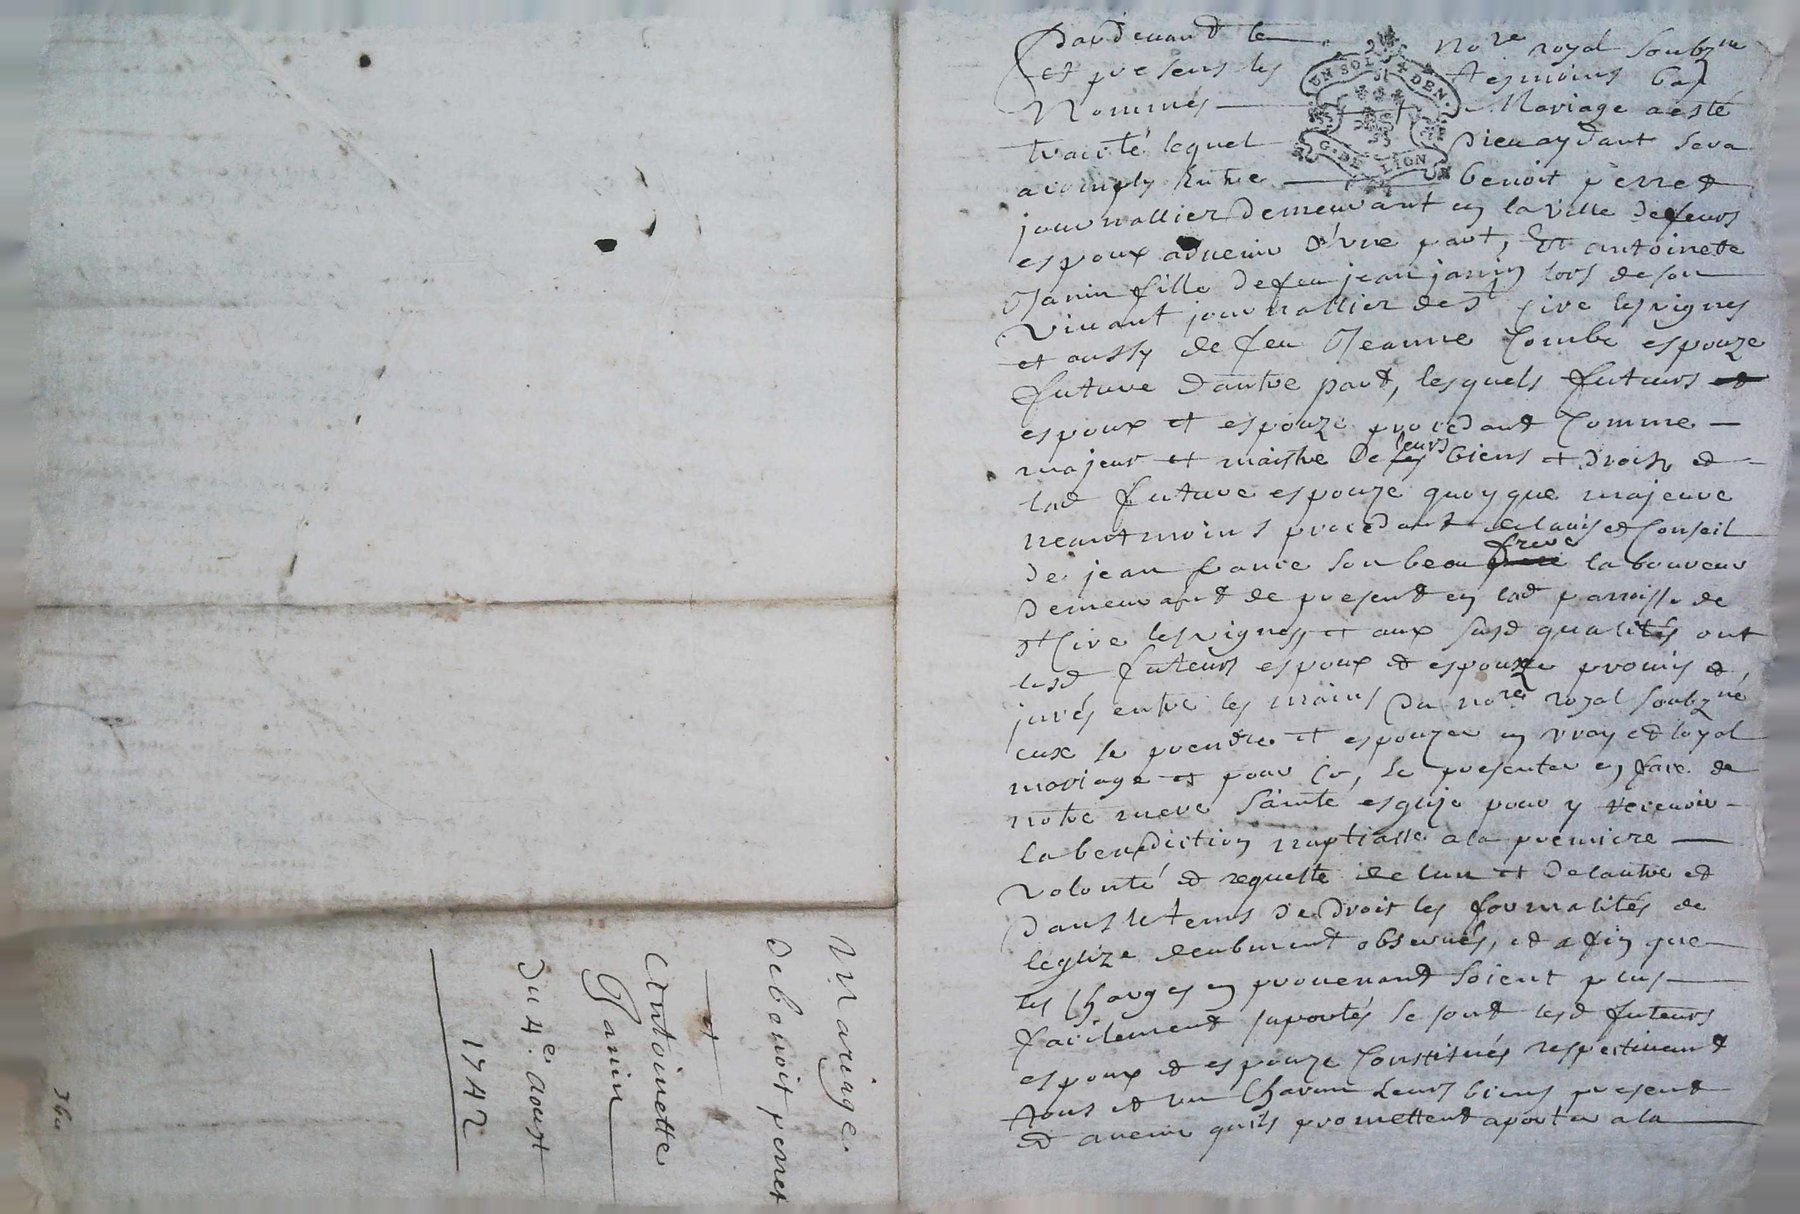 Pardevand le no.re royal soubz.né
et presens les tesmoins bas
Nommés Mariage a esté
traicté lequel Dieu aydant sera
acomply Entre benoit perret
journallier demeurant en la ville de feurs
espoux advenir d'une part, Et antoinette
Janin fille de feu jean janin lors de son
vivant journallier de st Cire les vignes
et aussy de feu Jeanne Combe espouze
future d'autre part, lesquels futurs et
espoux et espouze procedant Comme
majeur et maistre de ses leurs biens et droits et
lad future espouze quoyque majeure
neantmoins procedant de lavis et Conseil
de jean france son beau frere laboureur
demeurant de present en lad parroisse de
st Cire les vignes et aux susd qualités ont
lesd futeurs espoux et espouze promis et
jurés entre les mains du no.re royal soubz.né
eux se prendre et espouzer en vray et loyal
mariage et pour ce, se presenter en face de
notre mere sainte esglize pour y recevoir
la benediction nuptialle a la premiere
volonté et requeste de lun et de lautre et
dans le tems de droit les formalités de
leglize deubment observés, et afin que
les Charges en provenant soient plus
facilement suportés se sont lesd futeurs
espoux et espouze Constitués respectivemt
tous et un Chacun leurs biens present
et avenir quils promettent aporter a la
UN SOL 4 DEN.
G. DE LION
Mariage
de benoit perret
et
Antoinette
Janin
Du 4e. Aoust
1742